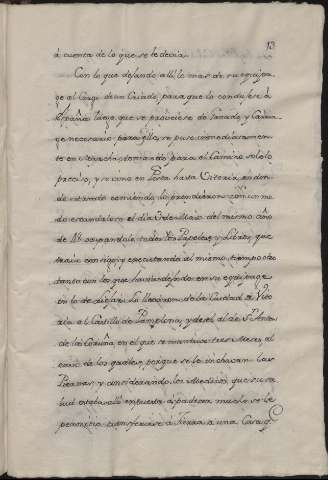 á cuenta de lo que se le devia.
Con lo que dejando alli lo mas de su equipa-
ge al Cargo de un Criado, para que lo condujese á
España luego que se proveiese de Ganado y Carrua-
ge necesario para ello, se puso immediatamen-
te en marcha, tomando para el Camino solo lo
preciso, y vino en Posta hasta Vitoria, en don-
de estando comiendo, lo prendieron con un mo-
do escandaloso el dia de Maio del mismo año
de 48 ocupandole todos los Papeles, y Libros, que
trahia consigo, y executando al mismo tiempo otro
tanto con los que havia dejado en su equipage
en lo de Lo llevaron de la Ciudad de Vito
ria al Castillo de Pamplona, y desde el al de Sn. Anton
de la Coruña, en el que se mantuvo tres Meses, al
cavo de los quales, porque se le inchavan las
Piernas, y considerando los Medicos que su sa
lud estaba alli expuesta á padecer mucho se le
permitio transferirse á Tierra a una Casa qe.